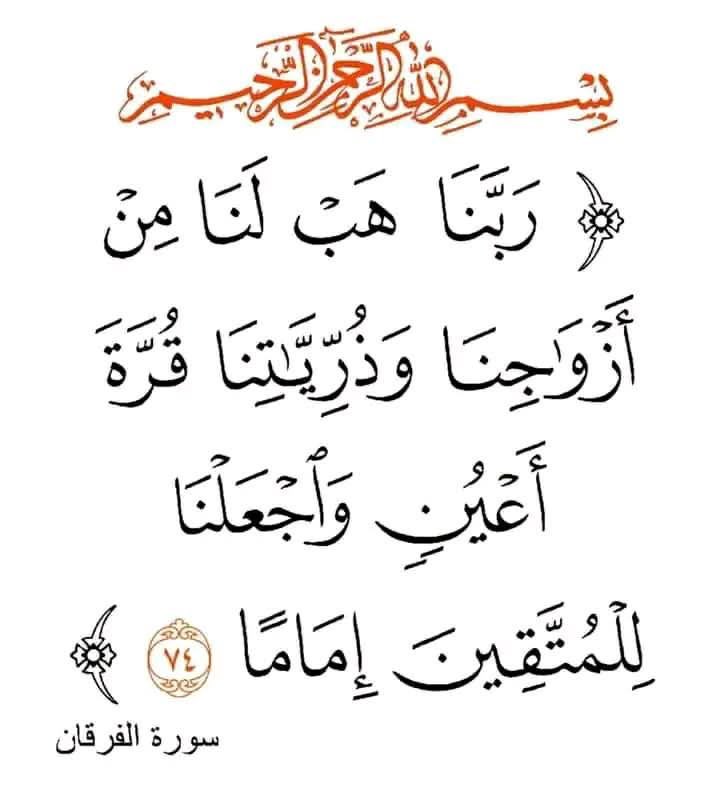 بِسْمِ اللَّهِ الرَّحْمَنِ الرَّحِيمِ
﴿ رَبَّنَا هَبْ لَنَا مِنْ
أَزْوَٰجِنَا وَذُرِّيَّـٰتِنَا قُرَّةَ
أَعْيُنٍ وَٱجْعَلْنَا
لِلْمُتَّقِينَ إِمَامًا ٧٤ ﴾
سورة الفرقان